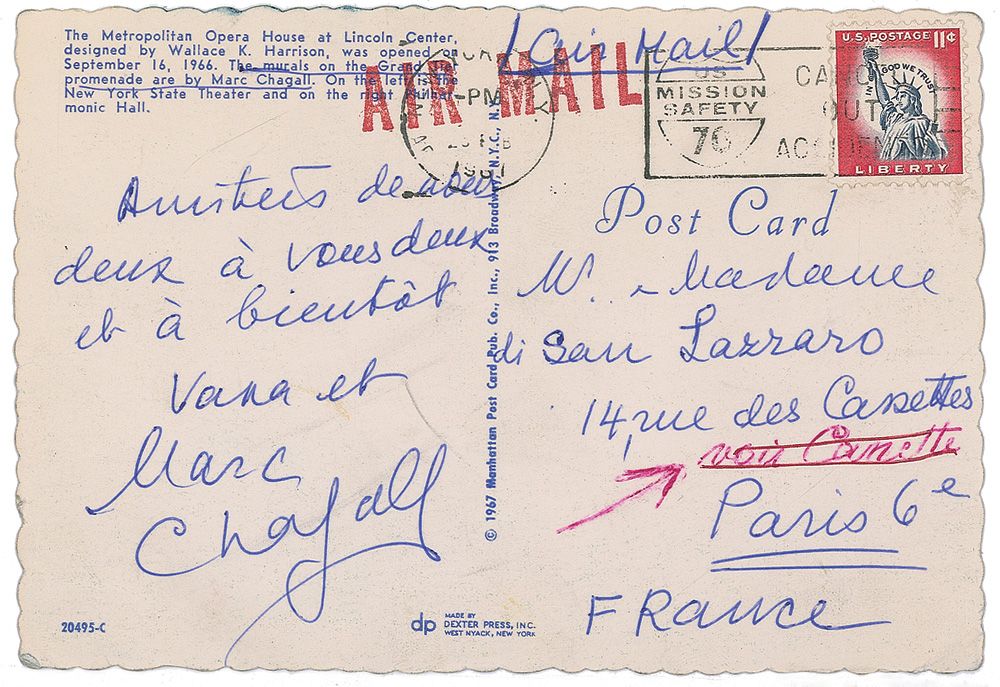 The Metropolitan Opera House at Lincoln Center,
designed by Wallace K. Harrison, was opened on
September 16, 1966. The murals on the Grand
promenade are by Marc Chagall. On the left is the
New York State Theater and on the right Philhar-
monic Hall.
Air Mail
AIR MAIL
PM
1967
US
MISSION
SAFETY
70
OUT
U.S. POSTAGE 11¢
IN GOD WE TRUST
LIBERTY
Amitiés de nous
deux à vous deux
et à bientôt
Vava et
Marc
Chagall
© 1967 Manhattan Post Card Pub. Co., Inc., 913 Broadway, N.Y.C., N.Y.
Post Card
M. Madame
di San Lazzaro
14, rue des Canettes
voir Canette
Paris 6e
France
20495-C
dp
MADE BY
DEXTER PRESS, INC.
WEST NYACK, NEW YORK